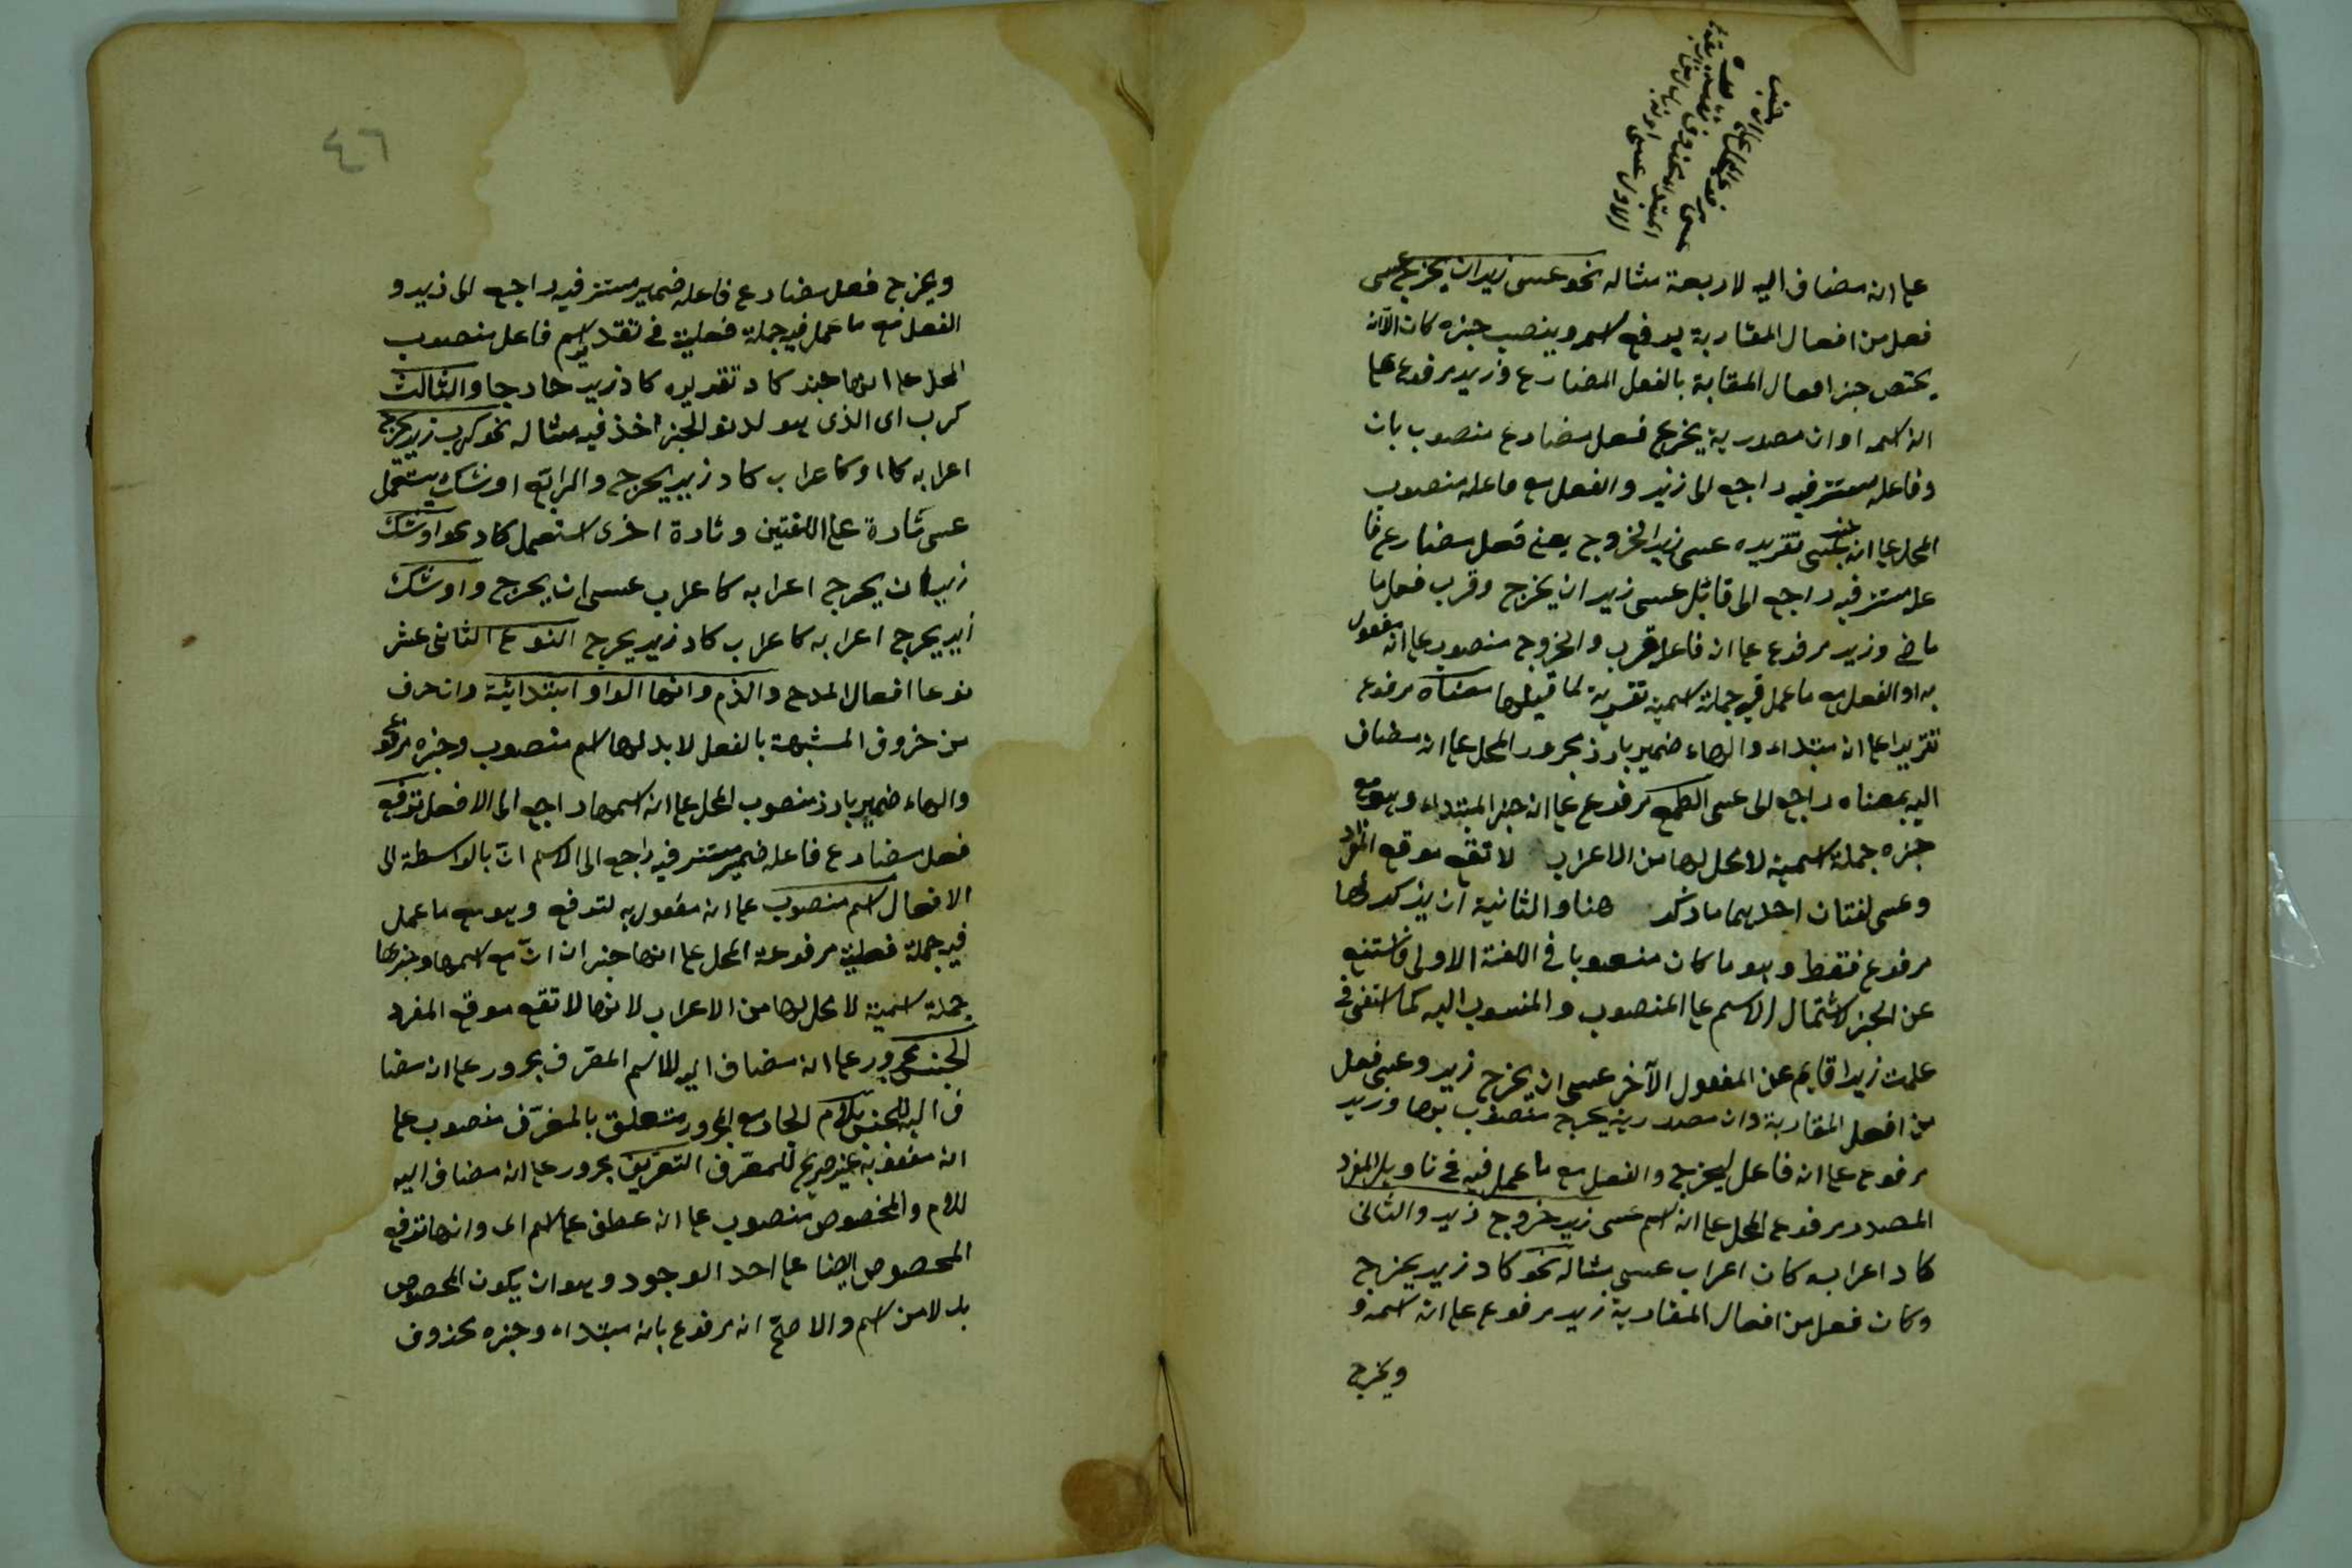 على انه مضاف اليه لاربعة مثاله نحو عسى زيد ان يخرج عسى
فعل من افعال المقاربة يرفع اسم وينصب خبره كان الا انه
يختص خبر افعال المقابة بالفعل المضارع وزيد مرفوع على
انه اسمه او ان مصدرية يخرج فعل مضارع منصوب بان
وفاعله مستتر فيه راجع الى زيد والفعل مع فاعله منصوب
المحل على انه خبر عسى تقريره عسى زيد الخروج يعنى فعل مضارع فا
عله مستتر فيه راجع الى قائل عسى زيد ان يخرج وقرب فعل ما
ماضى وزيد مرفوع على ان فاعل قرب والخروج منصوب على انه مفعول
به او الفعل مع ما عمل فيه جملة اسمية تفسيرية لما قبلها معناه مرفوع
تقريرا على انه مبتداء والهاء ضمير بارز مجرور المحل على انه مضاف
اليه بمعناه راجع الى عسى الطمع مرفوع على انه خبر المبتداء وهو مع
خبره جملة اسمية لا محل لها من الاعراب لا تقع موقع المفرد
وعسى لغتان احديهما ما ذكر هنا والثانية ان يذكر لها
مرفوع فقط وهو ما كان منصوبا فى اللغة الاولى فاستغنى
عن الخبر لاشتمال الاسم على المنصوب والمنسوب اليه كما استغنى فى
علمت زيدا قايم عن المفعول الآخر عسى ان يخرج زيد وعسى فعل
من افعل المقاربة وان مصدرية يخرج منصوب بها وزيد
مرفوع على انه فاعل ليخرج والفعل مع ما عمل فيه فى تاويل المفرد
المصدر مرفوع المحل على انه اسم عسى زيد خروج زيد والثانى
كاد اعرابه كان اعراب عسى مثاله نحو كاد زيد يخرج
وكان فعل من افعال المقاربة زيد مرفوع على انه اسمه و
ويخرج
٤٦
ويخرج فعل مضارع فاعله ضمير مستتر فيه راجع الى زيد و
الفعل مع ما عمل فيه جملة فعلية فى تقدير اسم فاعل منصوب
المحل على انها خبر كاد تقديره كاد زيد خارجا والثالث
كرب اى الذى هو لدنو الخبر اخذ فيه مثاله نحو كرب زيد يخرج
اعرابه كا او كاعراب كاد زيد يخرج والرابع اوشك يستعمل
عسى تارة على اللغتين وتارة اخرى استعمل كاد نحو اوشك
زيد ان يخرج اعرابه كاعراب عسى ان يخرج واوشك
زيد يخرج اعرابه كاعراب كاد زيد يخرج النوع الثانى عشر
نوعا افعال المدح والذم وانها الواو ابتدائية وان حرف
من حروف المشبهة بالفعل لا بد لها اسم منصوب وخبره مرفوع
والهاء ضمير بارز منصوب المحل على انه اسمها راجع الى الافعل ترفع
فعل مضارع فاعله ضمير مستتر فيه راجع الى الاسم انّ بالواسطة الى
الافعال اسم منصوب على انه مفعول به لترفع وهو مع ما عمل
فيه جملة فعلية مرفوعة المحل على انها خبر ان انّ مع اسمها وخبرها
جملة اسمية لا محل لها من الاعراب لانها لا تقع موقع المفرد
الجنس مجرور على انه مضاف اليه للاسم المعرف مجرور على انه مضا
ف اليه للجنس بلام الجار مع المجرور متعلق بالمعرّف منصوب على
انه مفعول به غير صريح للمعرّف التعريف مجرور على انه مضاف اليه
للام والمخصوص منصوب على انه عطف على اسم اى وانها ترفع
المخصوص ايضا على احد الوجود وهو ان يكون المخصوص
بدلا من اسم والاصحّ انه مرفوع بانه مبتداء وخبره محذوف